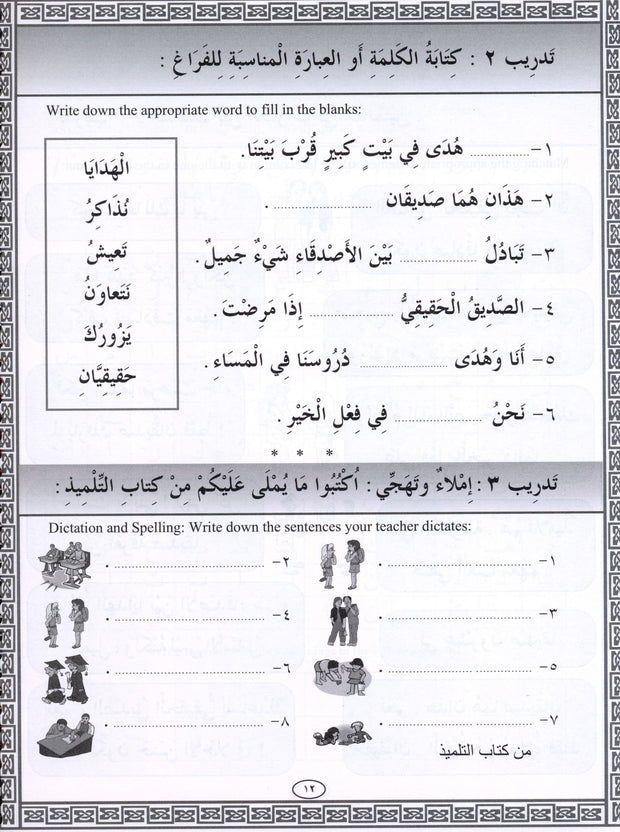 تَدرِيب ٢ : كِتَابَةُ الكَلِمَةِ أَو العِبارَةِ الْمناسِبَةِ لِلفَرَاغِ :
Write down the appropriate word to fill in the blanks:
١- .............. هُدَى فِي بَيْتٍ كَبِيرٍ قُرْبَ بَيْتِنَا.
٢- هَذَان هُمَا صَدِيقَان .............. .
٣- تَبَادُلُ .............. بَيْنَ الأَصْدِقَاءِ شَيْءٌ جَمِيلٌ.
٤- الصَّدِيقُ الْحَقِيقِيُّ .............. إِذَا مَرِضْتَ.
٥- أَنَا وَهُدَى .............. دُرُوسَنَا فِي الْمَسَاءِ.
٦- نَحْنُ .............. فِي فِعْلِ الْخَيْرِ
الْهَدَايَا
نُذَاكِرُ
تَعِيشُ
نَتَعاوَنُ
يَزُورُكَ
حَقِيقِيَّانِ
* * *
تَدرِيب ٣ : إِمْلاءٌ وتَهَجِّي : اُكْتُبُوا مَا يُمْلَى عَلَيكُمْ مِنْ كِتابِ التِّلْمِيذِ :
Dictation and Spelling: Write down the sentences your teacher dictates:
١- .............. .
٢- .............. .
٣- .............. .
٤- .............. .
٥- .............. .
٦- .............. .
٧- .............. .
٨- .............. .
من كتاب التلميذ
١٢